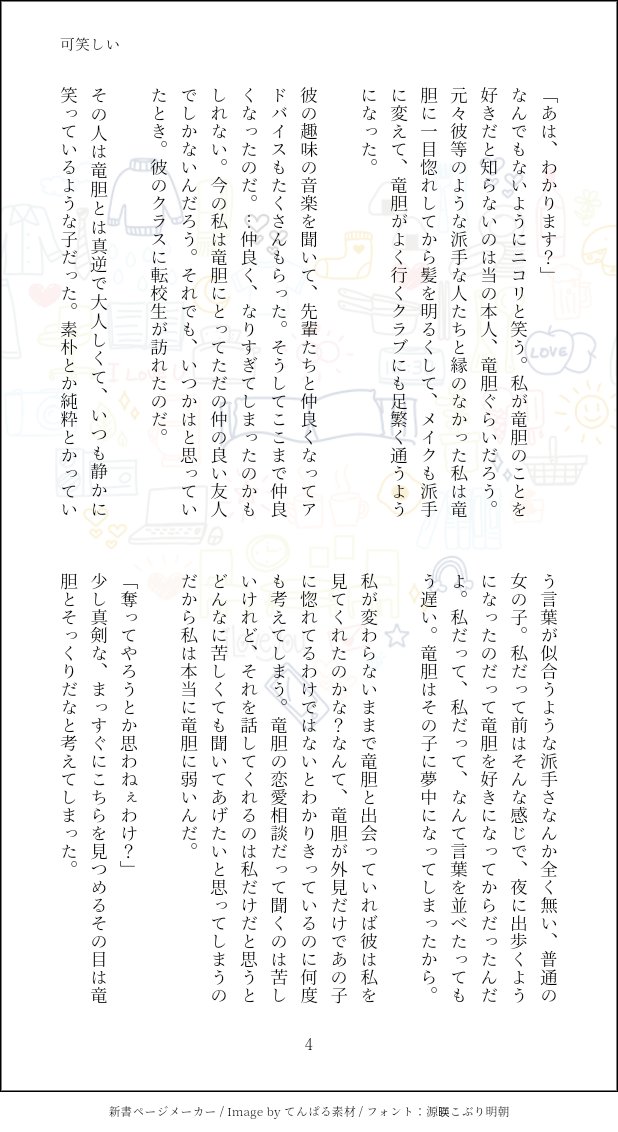 可笑しい
「あは、わかります？」
なんでもないようにニコリと笑う。私が竜胆のことを
好きだと知らないのは当の本人、竜胆ぐらいだろう。
元々彼等のような派手な人たちと縁のなかった私は竜
胆に一目惚れしてから髪を明るくして、メイクも派手
に変えて、竜胆がよく行くクラブにも足繁く通うよう
になった。
彼の趣味の音楽を聞いて、先輩たちと仲良くなってア
ドバイスもたくさんもらった。そうしてここまで仲良
くなったのだ。…仲良く、なりすぎてしまったのかも
しれない。今の私は竜胆にとってただの仲の良い友人
でしかないんだろう。それでも、いつかはと思ってい
たとき。彼のクラスに転校生が訪れたのだ。
その人は竜胆とは真逆で大人しくて、いつも静かに
笑っているような子だった。素朴とか純粋とかってい
う言葉が似合うような派手さなんか全く無い、普通の
女の子。私だって前はそんな感じで、夜に出歩くよう
になったのだって竜胆を好きになってからだったんだ
よ。私だって、私だって、なんて言葉を並べたっても
う遅い。竜胆はその子に夢中になってしまったから。
私が変わらないままで竜胆と出会っていれば彼は私を
見てくれたのかな？なんて、竜胆が外見だけであの子
に惚れてるわけではないとわかりきっているのに何度
も考えてしまう。竜胆の恋愛相談だって聞くのは苦し
いけれど、それを話してくれるのは私だけだと思うと
どんなに苦しくても聞いてあげたいと思ってしまうの
だから私は本当に竜胆に弱いんだ。
「奪ってやろうとか思わねぇわけ？」
少し真剣な、まっすぐにこちらを見つめるその目は竜
胆とそっくりだなと考えてしまった。
LOVE
4
新書ページメーカー / Image by てんぱる素材 / フォント：源暎こぶり明朝